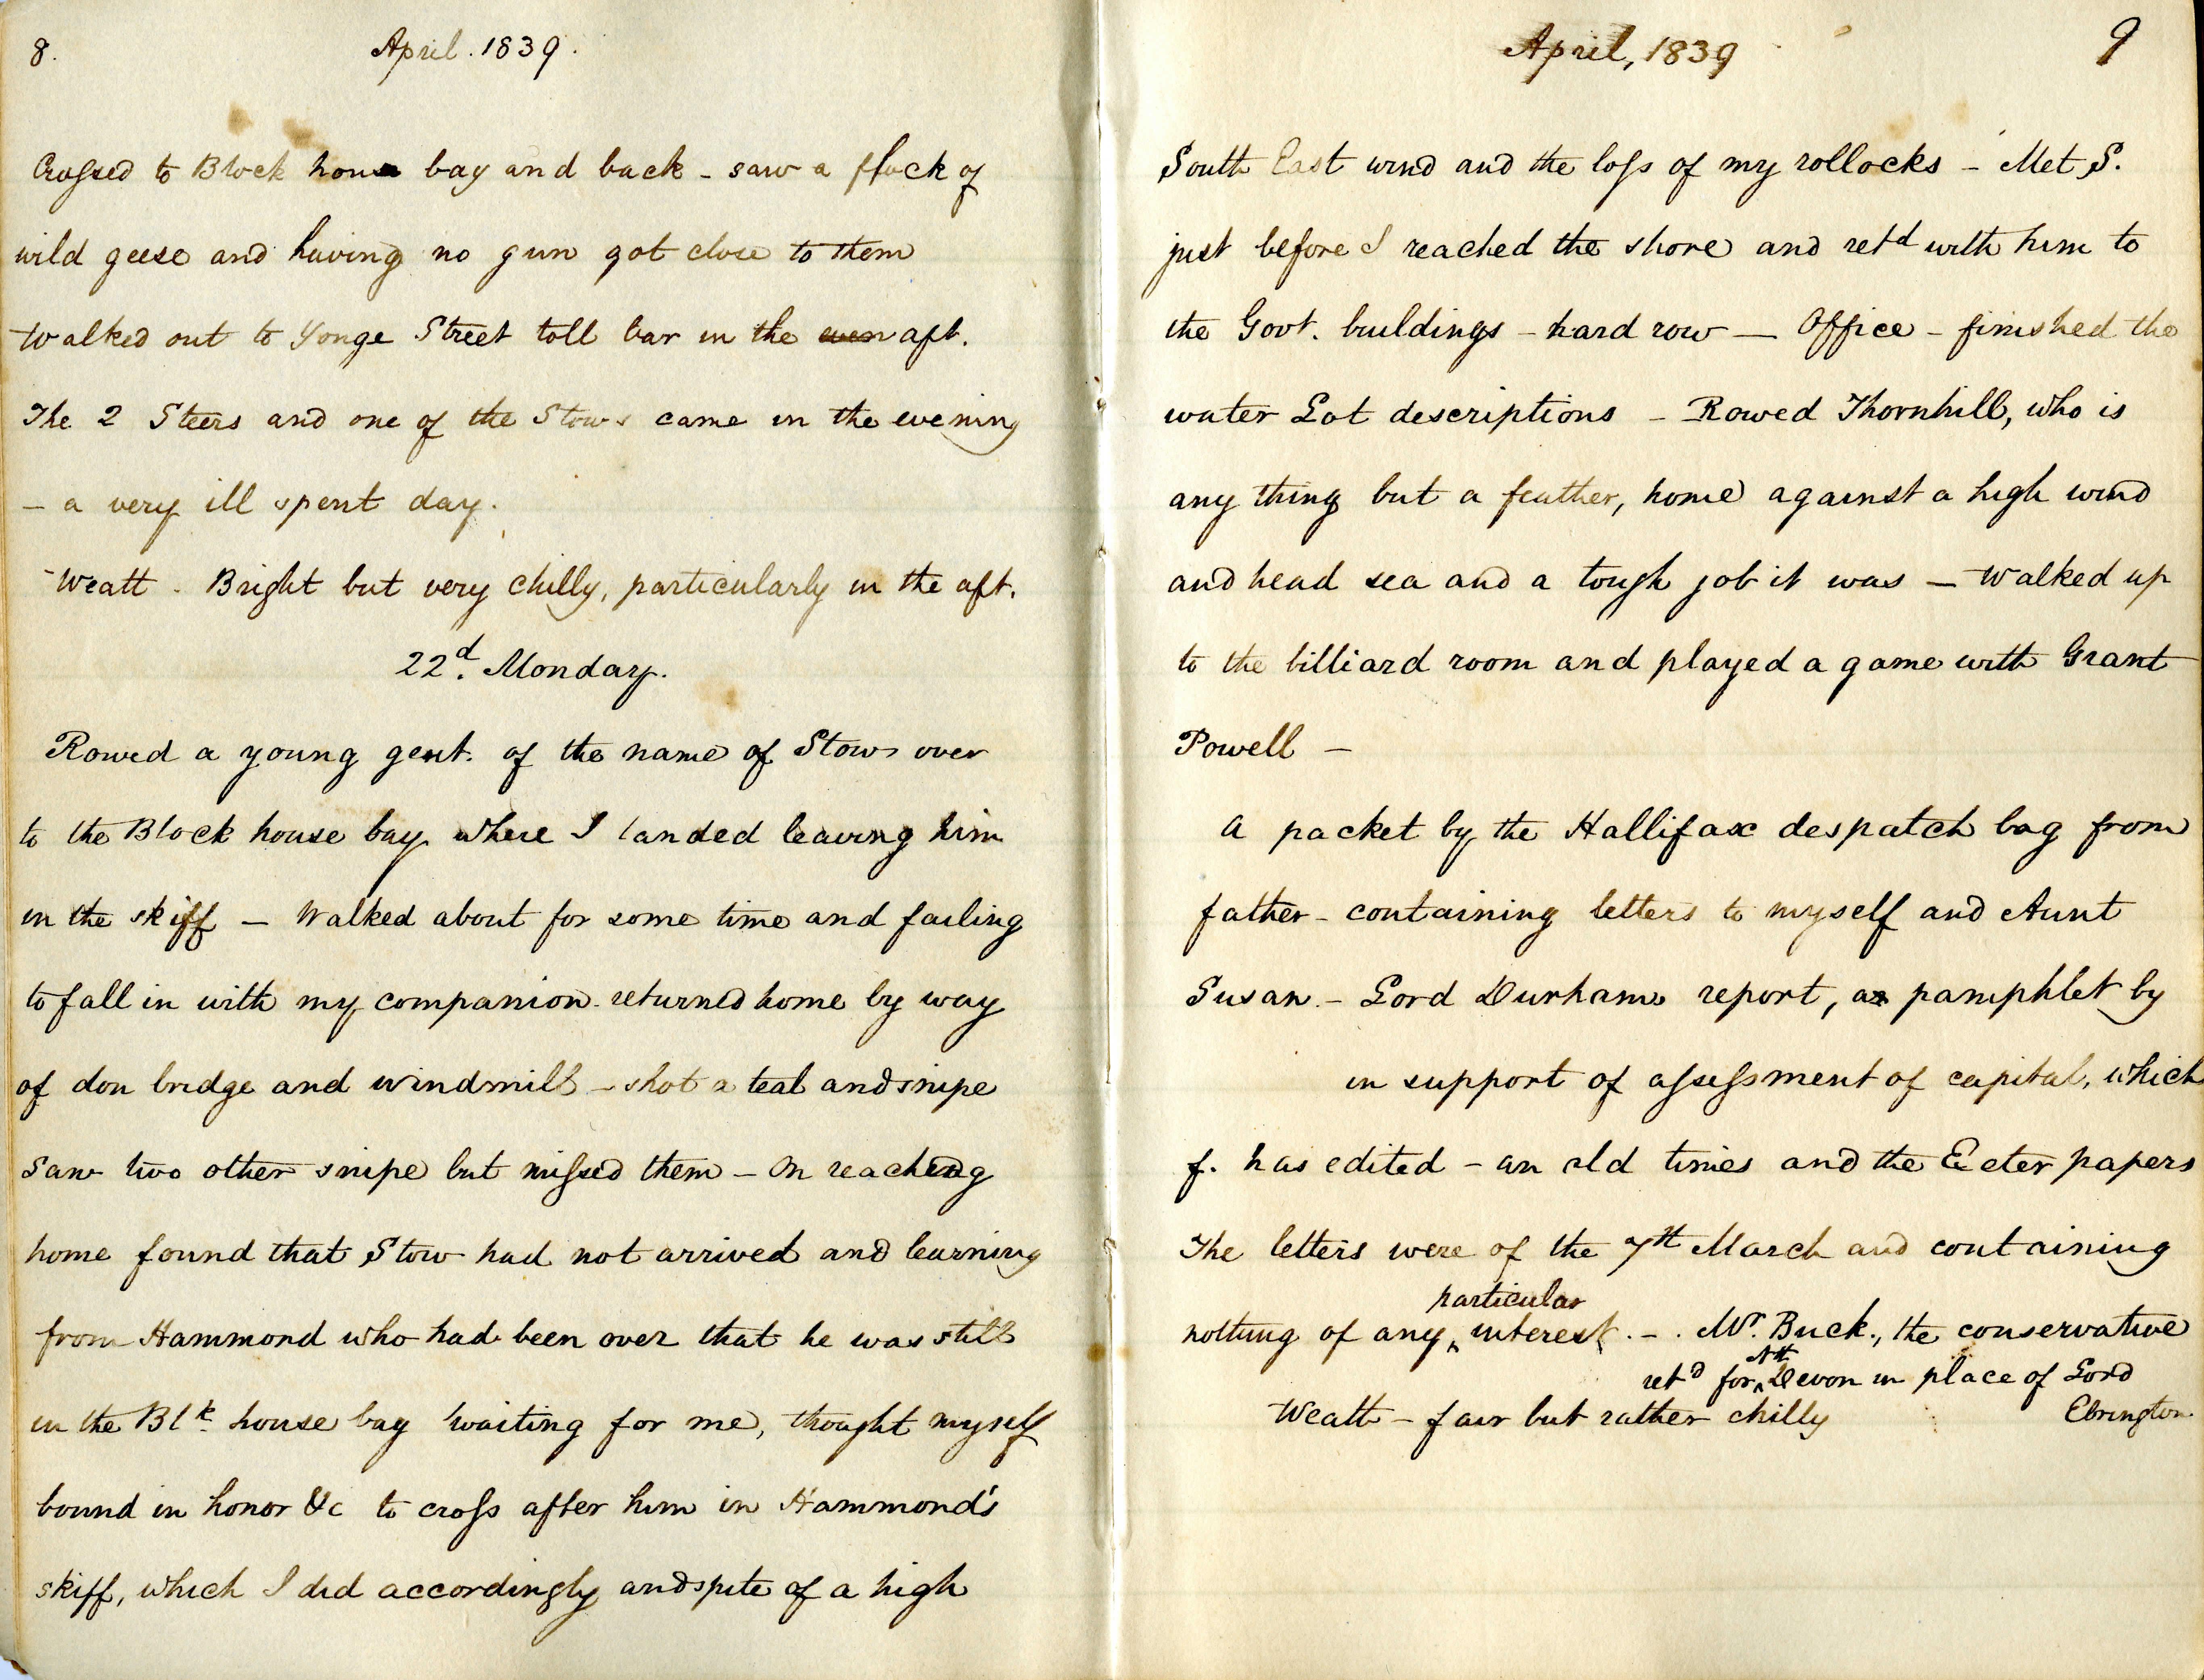 8.
April. 1839.
Crossed to Block house bay and back - saw a flock of
wild geese and having no gun got close to them
Walked out to Yonge Street toll bar in the even aft.
The 2 Steers and one of the Stows came in the evening
- a very ill spent day.
Weath - Bright but very chilly, particularly in the aft.
22d. Monday.
Rowed a young gent. of the name of Stow over
to the Block house bay where I landed leaving him
in the skiff - Walked about for some time and failing
to fall in with my companion returned home by way
of don bridge and windmill - shot a teal and snipe
Saw two other snipe but missed them - On reaching
home found that Stow had not arrived and learning
from Hammond who had been over that he was still
in the Blk. house bay waiting for me, thought myself
bound in honor &c to cross after him in Hammond's
skiff, which I did accordingly and spite of a high
April, 1839
9
South East wind and the loss of my rollocks - Met S.
just before I reached the shore and retd with him to
the Govt. buildings - hard row - Office - finished the
water Lot descriptions - Rowed Thornhill, who is
any thing but a feather, home against a high wind
and head sea and a tough job it was - Walked up
to the billiard room and played a game with Grant
Powell -
A packet by the Hallifax despatch bag from
father - containing letters to myself and Aunt
Susan - Lord Durhams report, a pamphlet by
in support of assessment of capital, which
f. has edited - an old times and the Exeter papers
The letters were of the 7th March and containing
particular
nothing of any ‸ interest. - . Mr. Buck., the conservative
Nth
retd for ‸ Devon in place of Lord
Weath - fair but rather chilly Ebrington